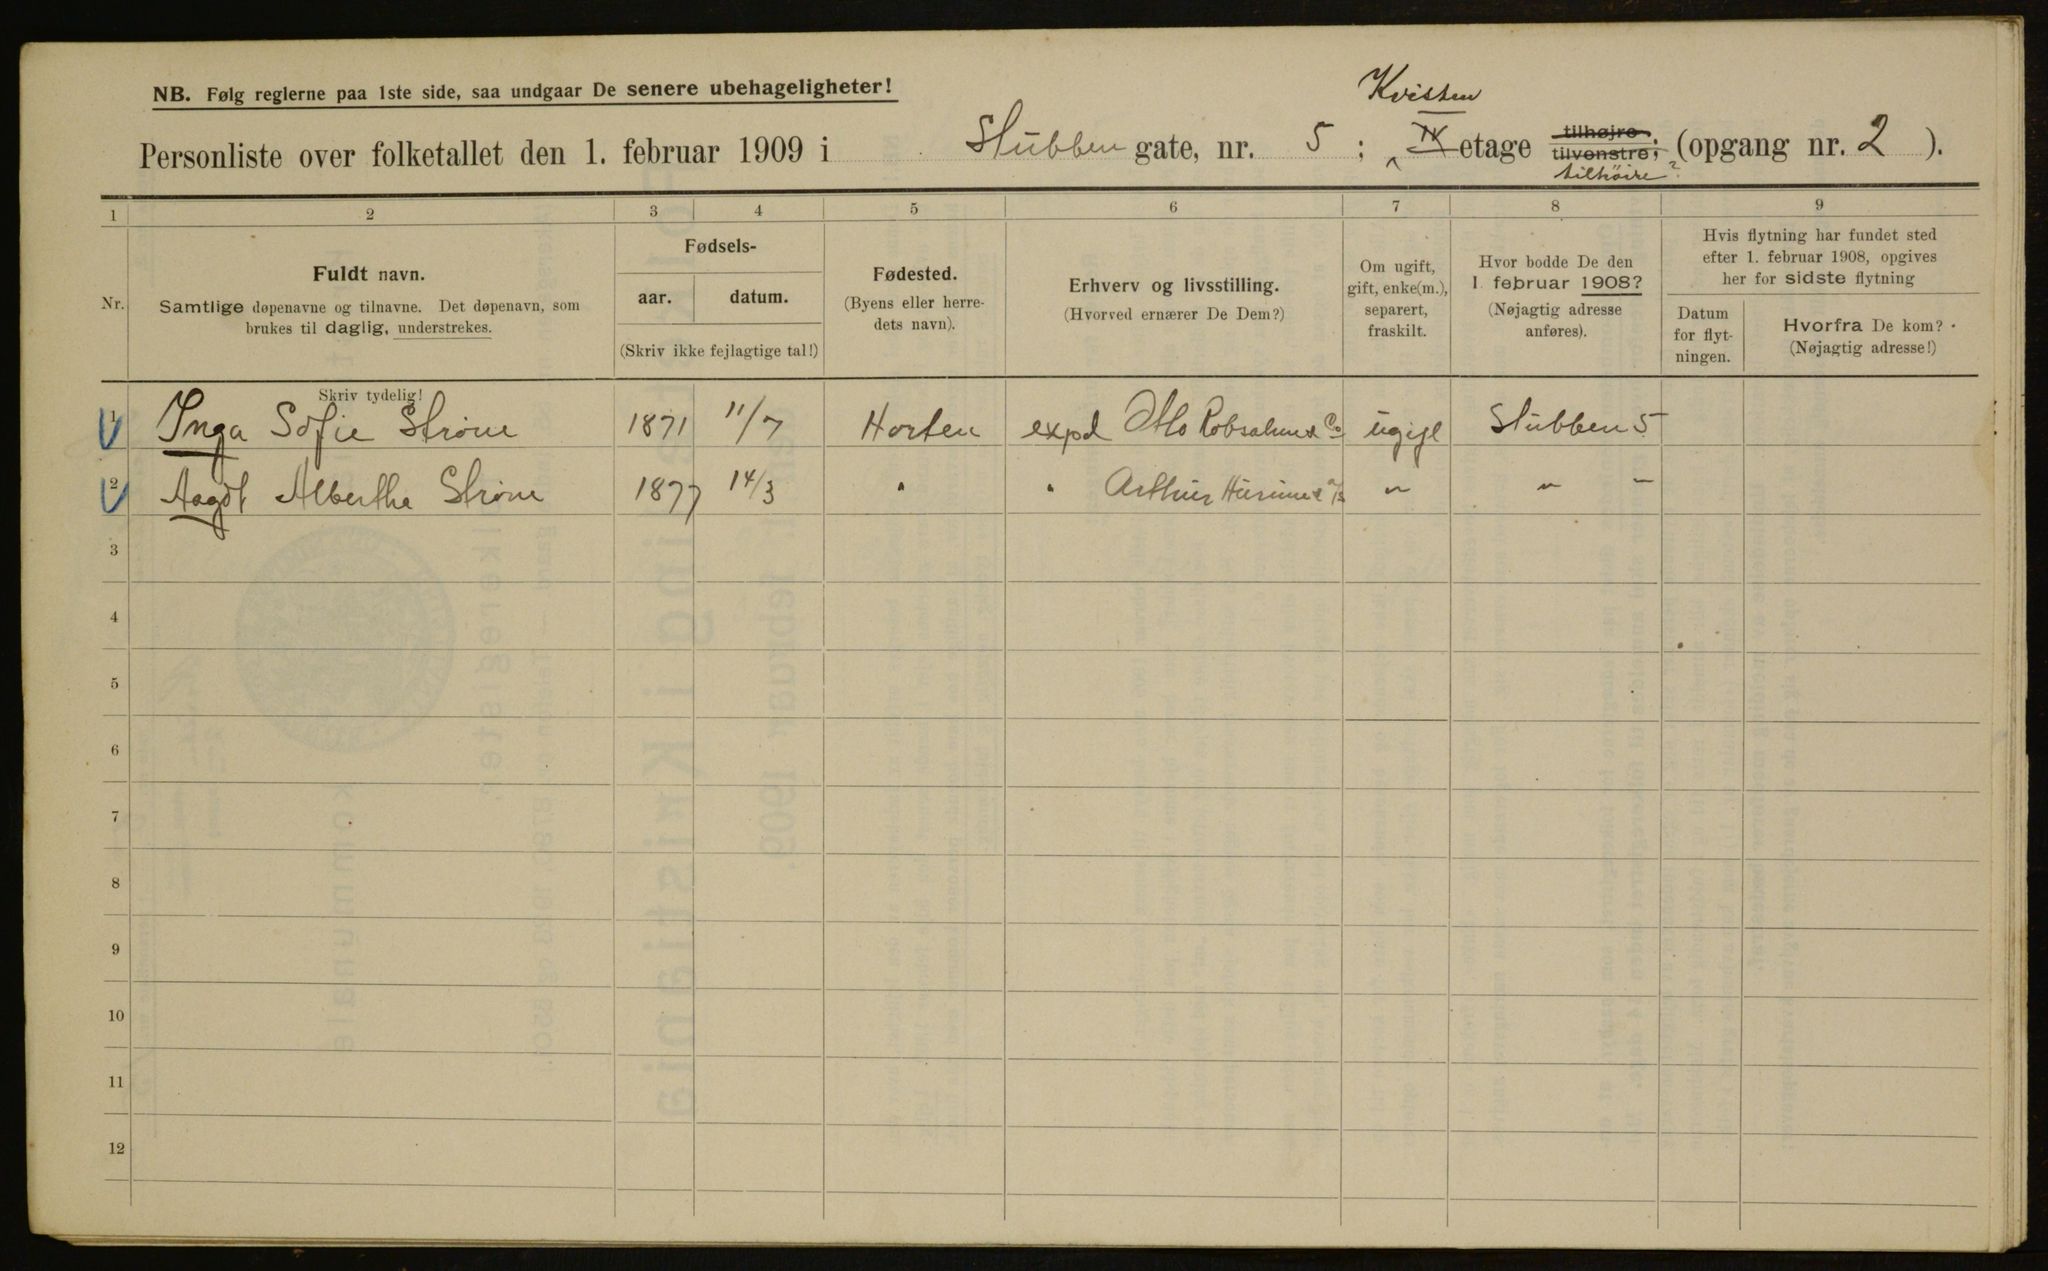 NB. Følg reglerne paa 1ste side, saa undgaar De senere ubehageligheter!
Kvisten
Personliste over folketallet den 1. februar 1909 i Stubben gate, nr. 5 ; IV etage tilhøjre tilvenstre; (opgang nr. 2 ).
tilhöire ?
1 2 3 4 5 6 7 8 9
Nr.
Fuldt navn.
Samtlige døpenavne og tilnavne. Det døpenavn, som
brukes til daglig, understrekes.
Skriv tydelig!
Fødsels-
aar. datum.
(Skriv ikke fejlagtige tal!)
Fødested.
(Byens eller herre-
dets navn).
Erhverv og livsstilling.
(Hvorved ernærer De Dem?)
Om ugift,
gift, enke(m.),
separert,
fraskilt.
Hvor bodde De den
1. februar 1908?
(Nøjagtig adresse
anføres).
Hvis flytning har fundet sted
efter 1. februar 1908, opgives
her for sidste flytning
Datum
for flyt-
ningen.
Hvorfra De kom?
(Nøjagtig adresse!)
1 Inga Sofie Strøm 1871 11/7 Horten expd Otto Robsahm & Co ugift Stubben 5
2 Aagot Alberthe Strøm 1877 14/3 " " Arthur " " "
3
4
5
6
7
8
9
10
11
12